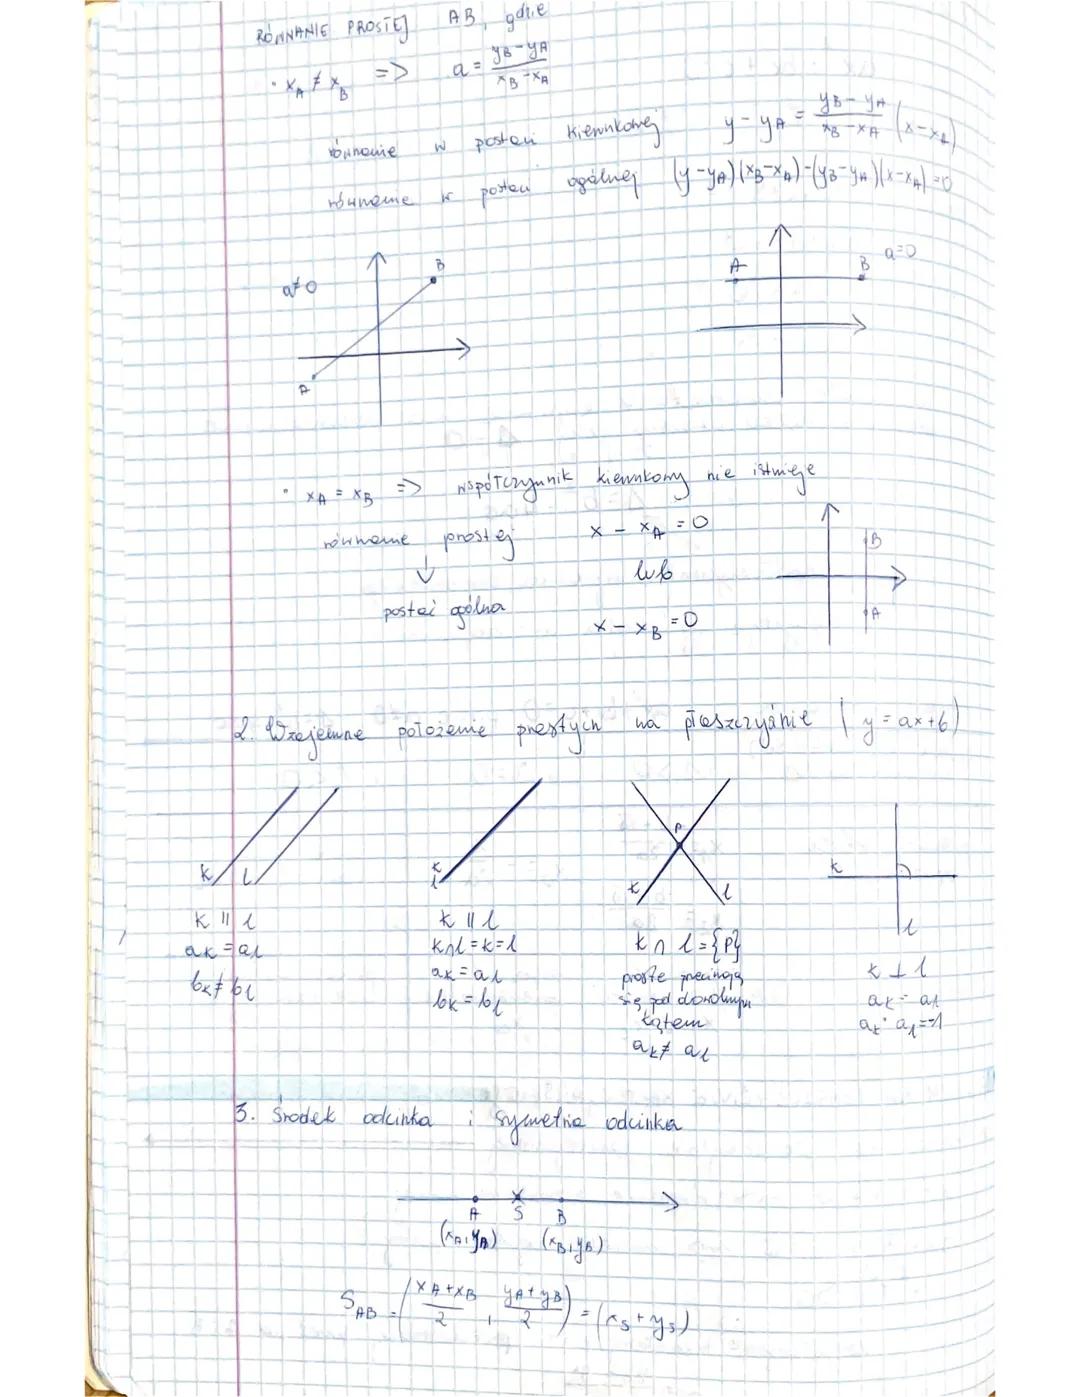 RÓWNANIE PROSTEJ AB, gdzie
• x_A ≠ x_B => a = (y_B - y_A)/(x_B - x_A)
równanie w postaci kierunkowej y - y_A = (y_B - y_A)/(x_B - x_A) (x - x_A)
równanie w postaci ogólnej (y - y_A)(x_B - x_A) - (y_B - y_A)(x - x_A) = 0
a ≠ 0 B A
A B a = 0
• x_A = x_B => współczynnik kierunkowy nie istnieje
równanie prostej x - x_A = 0
↓ lub
postać ogólna x - x_B = 0
B
A
2. Wzajemne położenie prostych na płaszczyźnie (y = ax + b)
k l
k || l
a_k = a_l
b_k ≠ b_l
k l
k || l
k ∩ l = k = l
a_k = a_l
b_k = b_l
P
k l
k ∩ l = {P}
proste przecinają
się pod dowolnym
kątem
a_k ≠ a_l
k
l
k ⊥ l
a_k = a_l
a_k · a_l = -1
3. Środek odcinka i symetria odcinka
A S B
(x_A, y_A) (x_B, y_B)
S_AB = ((x_A + x_B)/2, (y_A + y_B)/2) = (x_s + y_s)